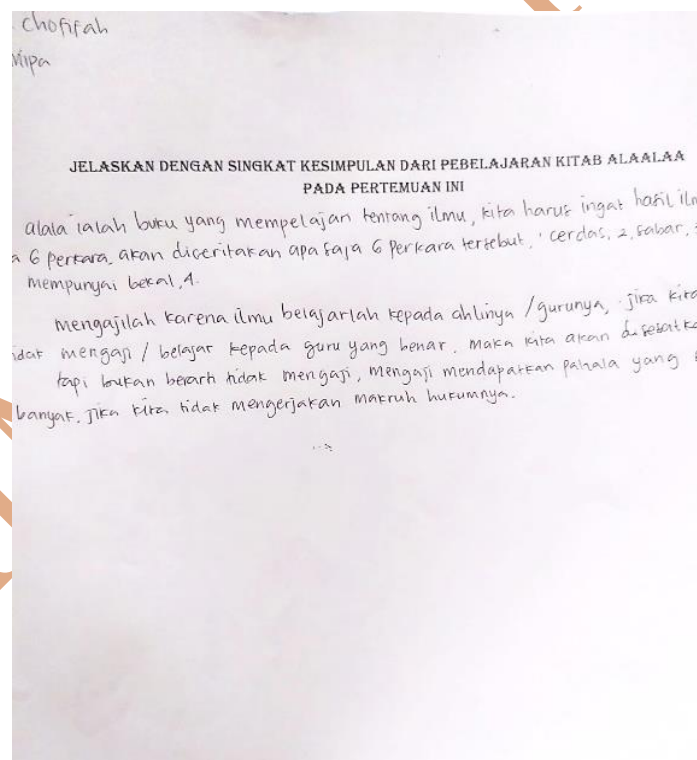 Chofifah
Mipa
JELASKAN DENGAN SINGKAT KESIMPULAN DARI PEBELAJARAN KITAB ALAALAA
PADA PERTEMUAN INI
alala ialah buku yang mempelajari tentang ilmu, kita harus ingat hasil
6 perkara, akan diceritakan apa saja 6 perkara tersebut, ' cerdas, 2, sabar,
mempunyai bekal, 4.
mengajilah karena ilmu belajarlah kepada ahlinya / gurunya, jika
mengaji / belajar kepada guru yang benar, maka kita akan
tapi bukan berarti tidak mengaji, mengaji mendapatkan pahala yang
banyak, jika kita tidak mengerjakan makruh hukumnya.